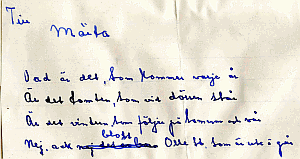 Till
Märta
Vad är det, som kommer varje år
Är det tomten, som vid dörren står
Är det vinden som följer på sommar och vår
Nej, ack blott Olle St, som är ute i går